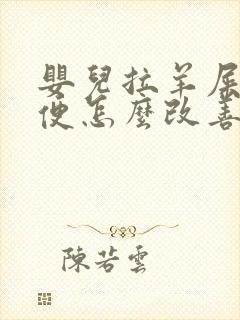 嬰兒拉羊屎
便怎麼改善
陳若雲